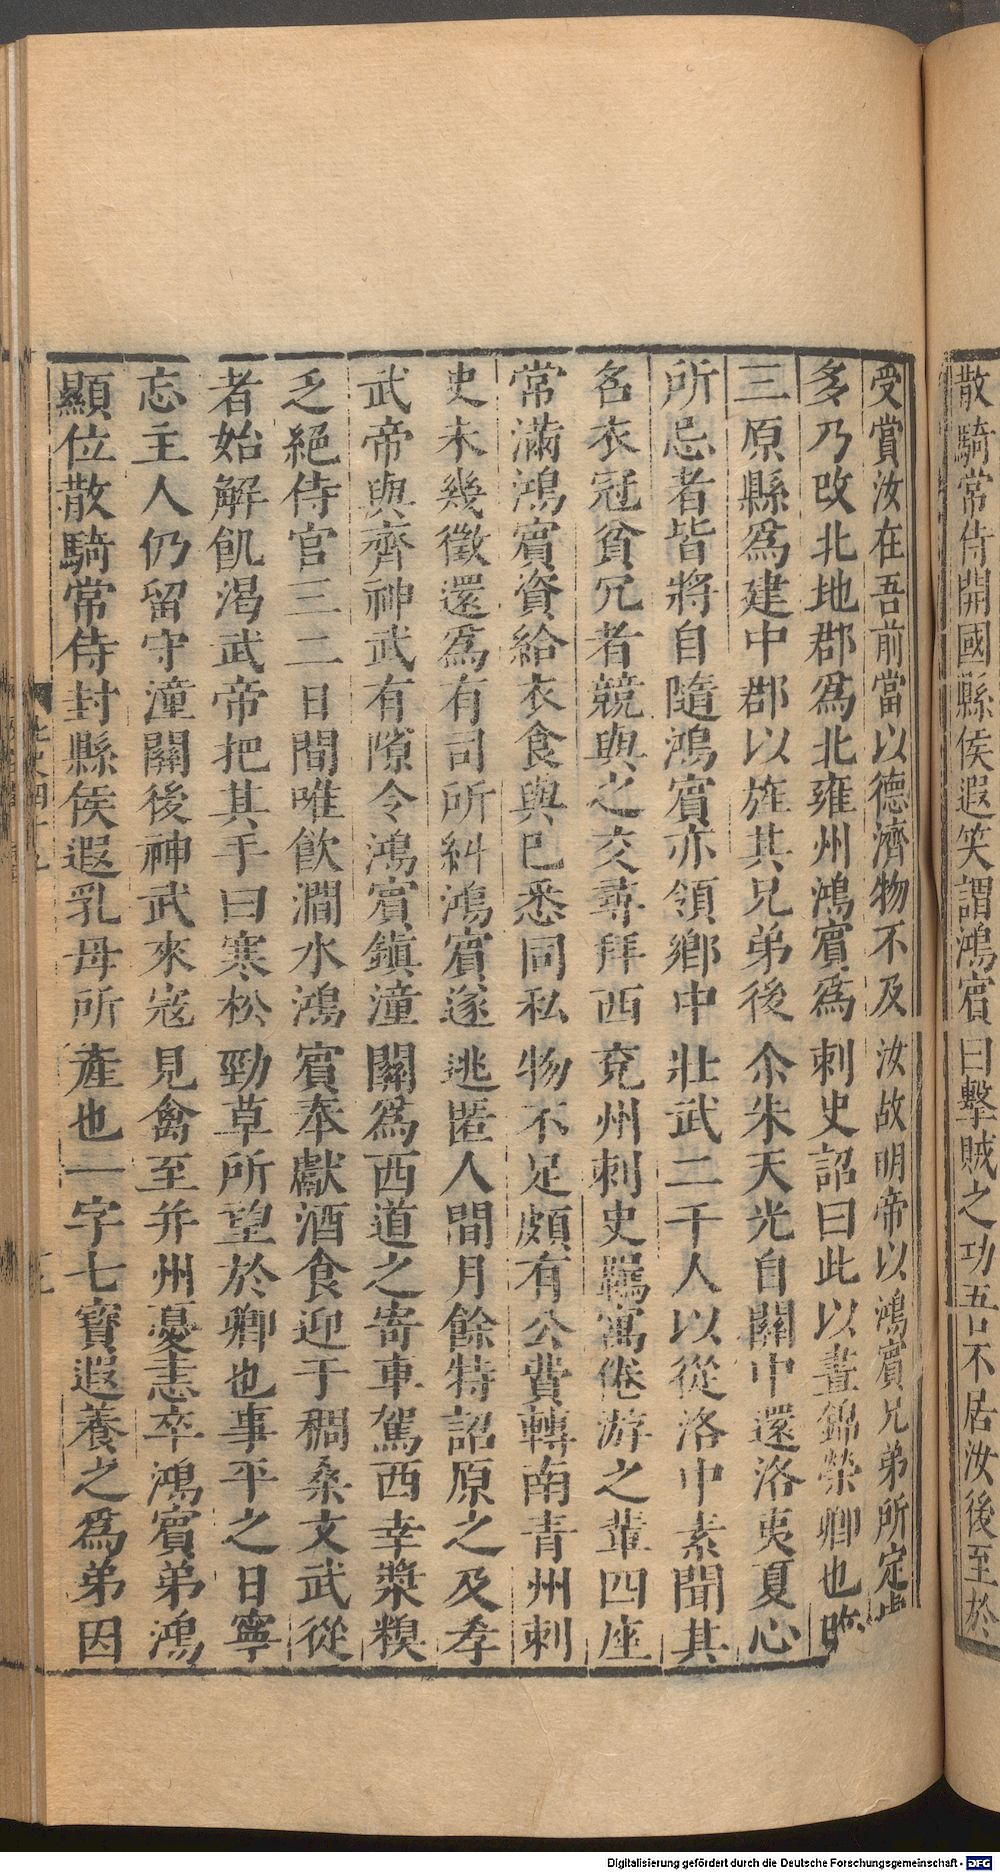 散騎常侍開國縣侯遐笑謂鴻賓曰擊賊之功吾不居汝後至於
受賞汝在吾前當以德濟物不及汝故明帝以鴻賓兄弟所定處
多乃改北地郡爲北雍州鴻賓爲刺史詔曰此以晝錦榮卿也改
三原縣爲建中郡以旌其兄弟後尒朱天光自關中還洛夷夏心
所忌者皆將自隨鴻賓亦領鄉中壯武二千人以從洛中素聞其
名衣冠貧冗者競與之交尋拜西兗州刺史羇寓倦游之輩四座
常滿鴻賓資給衣食與巳悉同私物不足頗有公費轉南青州刺
史未幾徵還爲有司所糾鴻賓遂逃匿人間月餘特詔原之及孝
武帝與齊神武有隙令鴻賓鎮潼關爲西道之寄車駕西幸漿糗
乏絕侍官三二日間唯飲澗水鴻賓奉獻酒食迎于稠桑文武從
者始解飢渴武帝把其手曰寒松勁草所望於卿也事平之日寧
忘主人仍留守潼關後神武來寇見禽至并州憂恚卒鴻賓弟鴻
顯位散騎常侍封縣侯遐乳母所產也一字七寶遐養之爲弟因
Digitalisierung gefördert durch die Deutsche Forschungsgemeinschaft - DFG